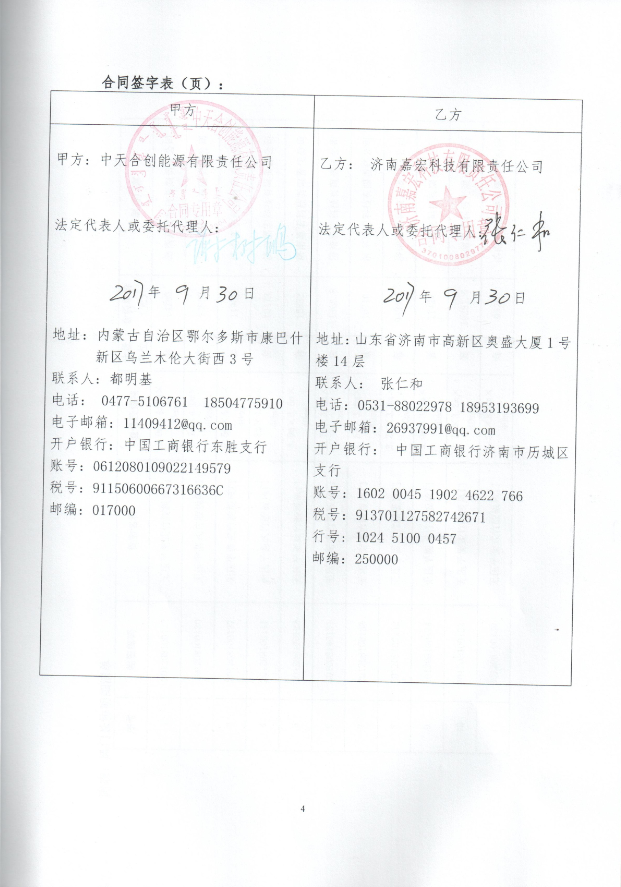 合同签字表（页）：
甲方
甲方：中天合创能源有限责任公司
合同专用章
法定代表人或委托代理人：
2017年 9月30日
地址：内蒙古自治区鄂尔多斯市康巴什
新区乌兰木伦大街西3号
联系人：都明基
电话： 0477-5106761 18504775910
电子邮箱：11409412@qq.com
开户银行：中国工商银行东胜支行
账号：0612080109022149579
税号：91150600667316636C
邮编：017000
乙方
乙方： 济南嘉宏科技有限责任公司
济南嘉宏科技有限责任公司
合同专用章
法定代表人或委托代理人：张仁和
2017年 9月30日
地址：山东省济南市高新区奥盛大厦1号
楼14层
联系人： 张仁和
电话：0531-88022978 18953193699
电子邮箱：26937991@qq.com
开户银行： 中国工商银行济南市历城区
支行
账号：1602 0045 1902 4622 766
税号：913701127582742671
行号：1024 5100 0457
邮编：250000
4